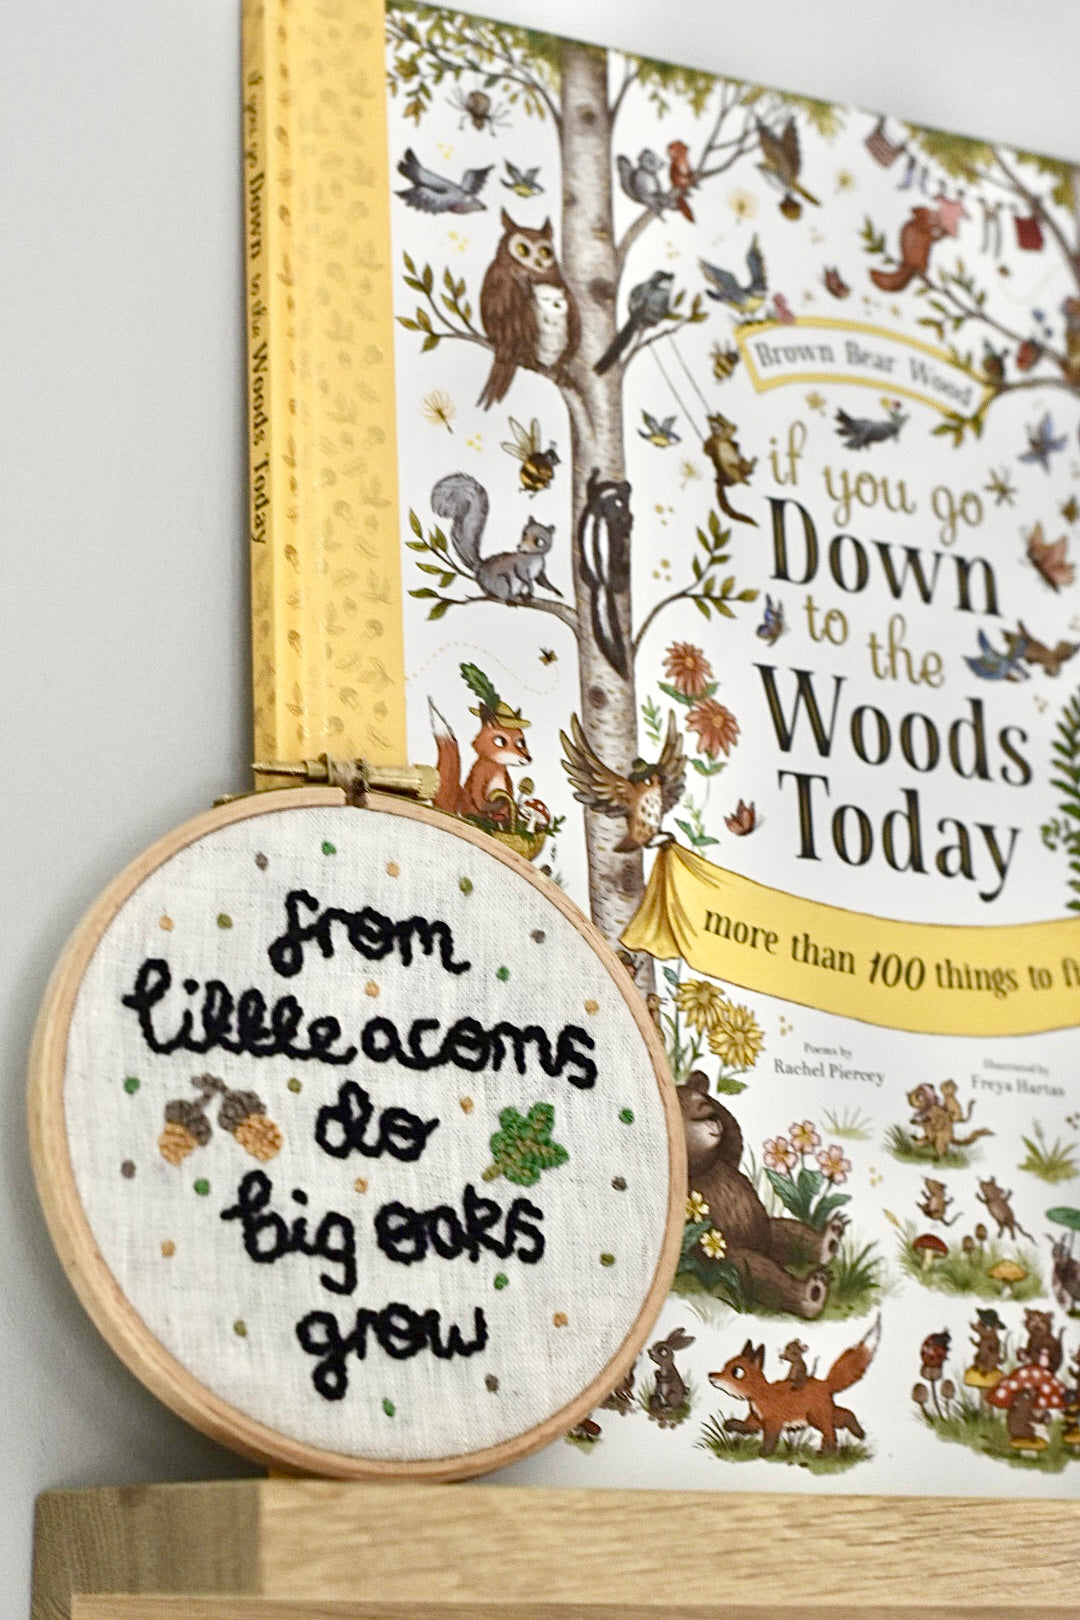 if you go Down to the Woods Today
Brown Bear Wood
if you go
Down
to the
Woods
Today
more than 100 things to
Poems by
Rachel Piercey
Illustrated by
Freya Hartas
from
little acorns
do
big oaks
grow